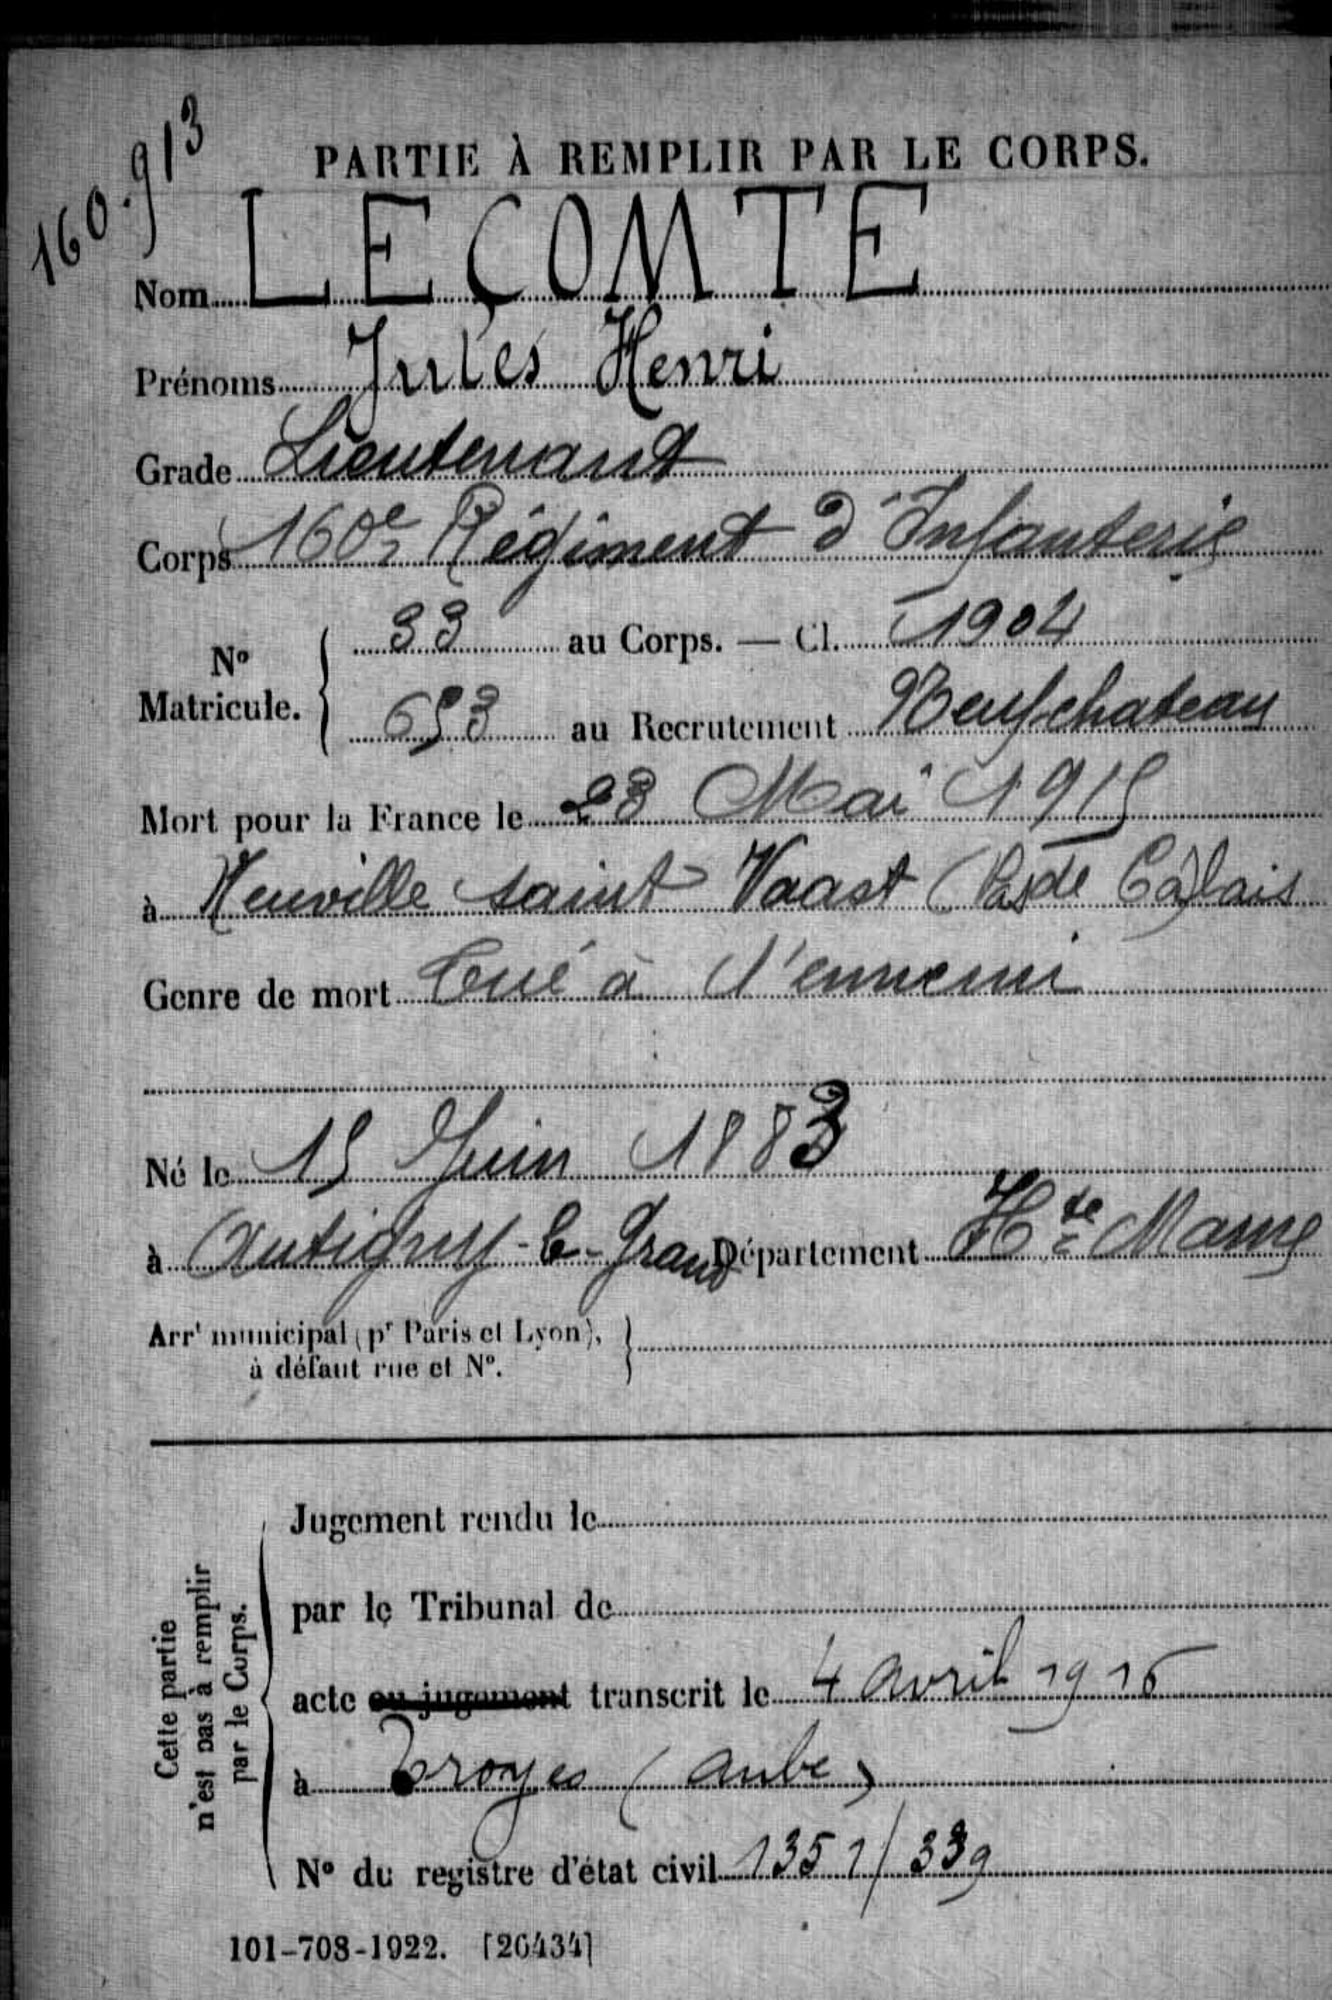 160.913
PARTIE À REMPLIR PAR LE CORPS.
Nom LECOMTE
Prénoms Jules Henri
Grade Lieutenant
Corps 160e Régiment d'Infanterie
No Matricule. { 33 au Corps. — Cl. 1904
653 au Recrutement Neufchateau
Mort pour la France le 23 Mai 1915
à Neuville saint Vaast (Pas de Calais
Genre de mort Tué à l'ennemi
Né le 15 Juin 1883
à Autigny-le-Grand Département Hte Marne
Arrt municipal (pr Paris et Lyon), }
à défaut rue et No.
Cette partie
n'est pas à remplir
par le Corps.
Jugement rendu le
par le Tribunal de
acte ou jugement transcrit le 4 avril 1916
à Troyes (aube)
No du registre d'état civil 1351/339
101-708-1922. [26434]